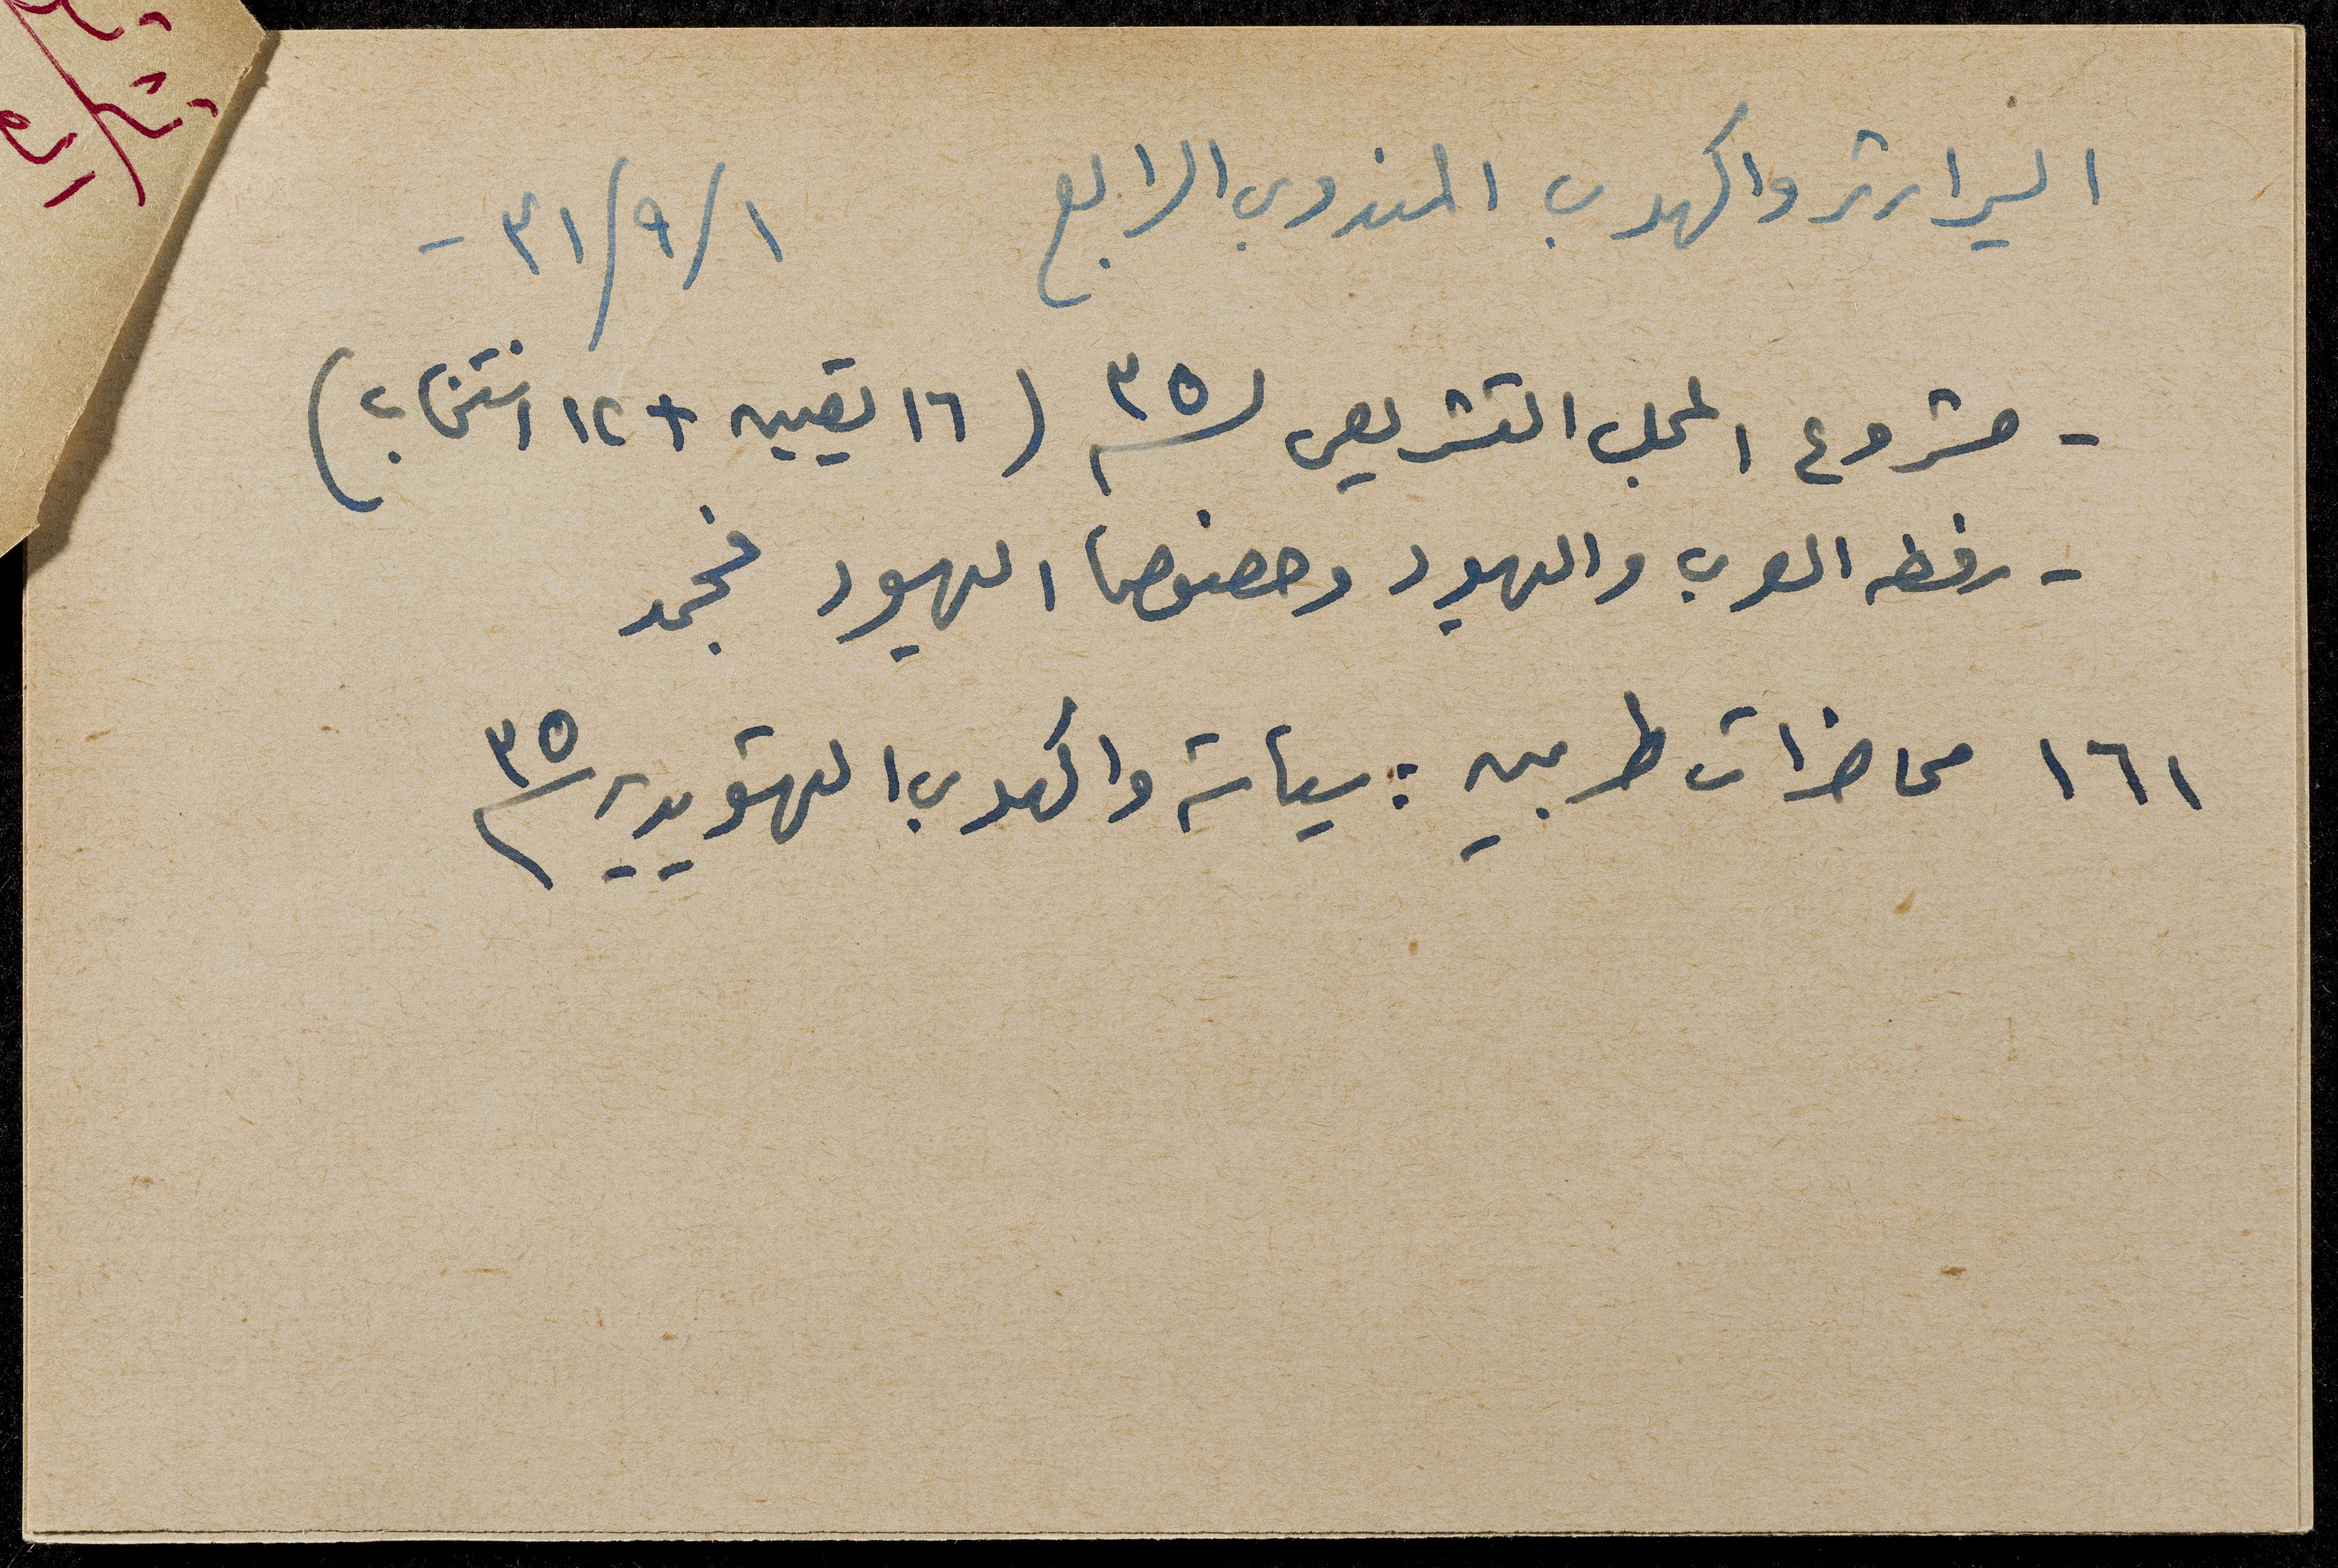 السير ارثر واكهوب المندوب الرابع ١/٩/٣١ -
- مشروع المجلس التشريعي ل ٣٥ (١٦ تعيين + ١٢ انتخاب)
- رفضه العرب واليهود وخصوصا اليهود فجمد
١٦١ محاضرات طربين : سياسة واكهوب التهويدية ٣٥